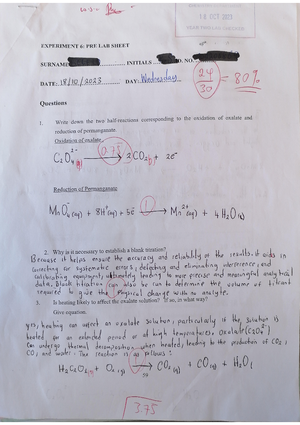 18 OCT 2023
EXPERIMENT 6: PRE LAB SHEET
SURNAME INITIALS D. NO.
DATE: 18/10/2023 DAY: Wednesday
24/30 = 80%
Questions
1. Write down the two half-reactions corresponding to the oxidation of oxalate and
reduction of permanganate
Oxidation of oxalate
C₂O₄²⁻ 0.75 → 2CO₂(g) + 2e⁻
Reduction of Permanganate
MnO₄⁻(aq) + 8H⁺(aq) + 5e 1 → Mn²⁺(aq) + 4H₂O(l)
2. Why is it necessary to establish a blank titration?
Because it helps ensure the accuracy and reliability of the results, it aids in
correcting for systematic errors, detecting and eliminating interference, and
calibrating equipment, ultimately leading to more precise and meaningful analytical
data, blank titration can also be can to determine the volume of titrant
required to give the physical change with no analyte.
3. Is heating likely to affect the oxalate solution? If so, in what way?
Give equation.
yes, heating can affect an oxalate solution, particularly if the solution is
heated for an extended period or at high temperatures, oxalate (C₂O₄²⁻)
can undergo thermal decomposition when heated, leading to the production of CO₂,
CO, and water. The reaction is as follows:
H₂C₂O₄ + O₂(g) → CO₂(g) + CO(g) + H₂O(
3.75